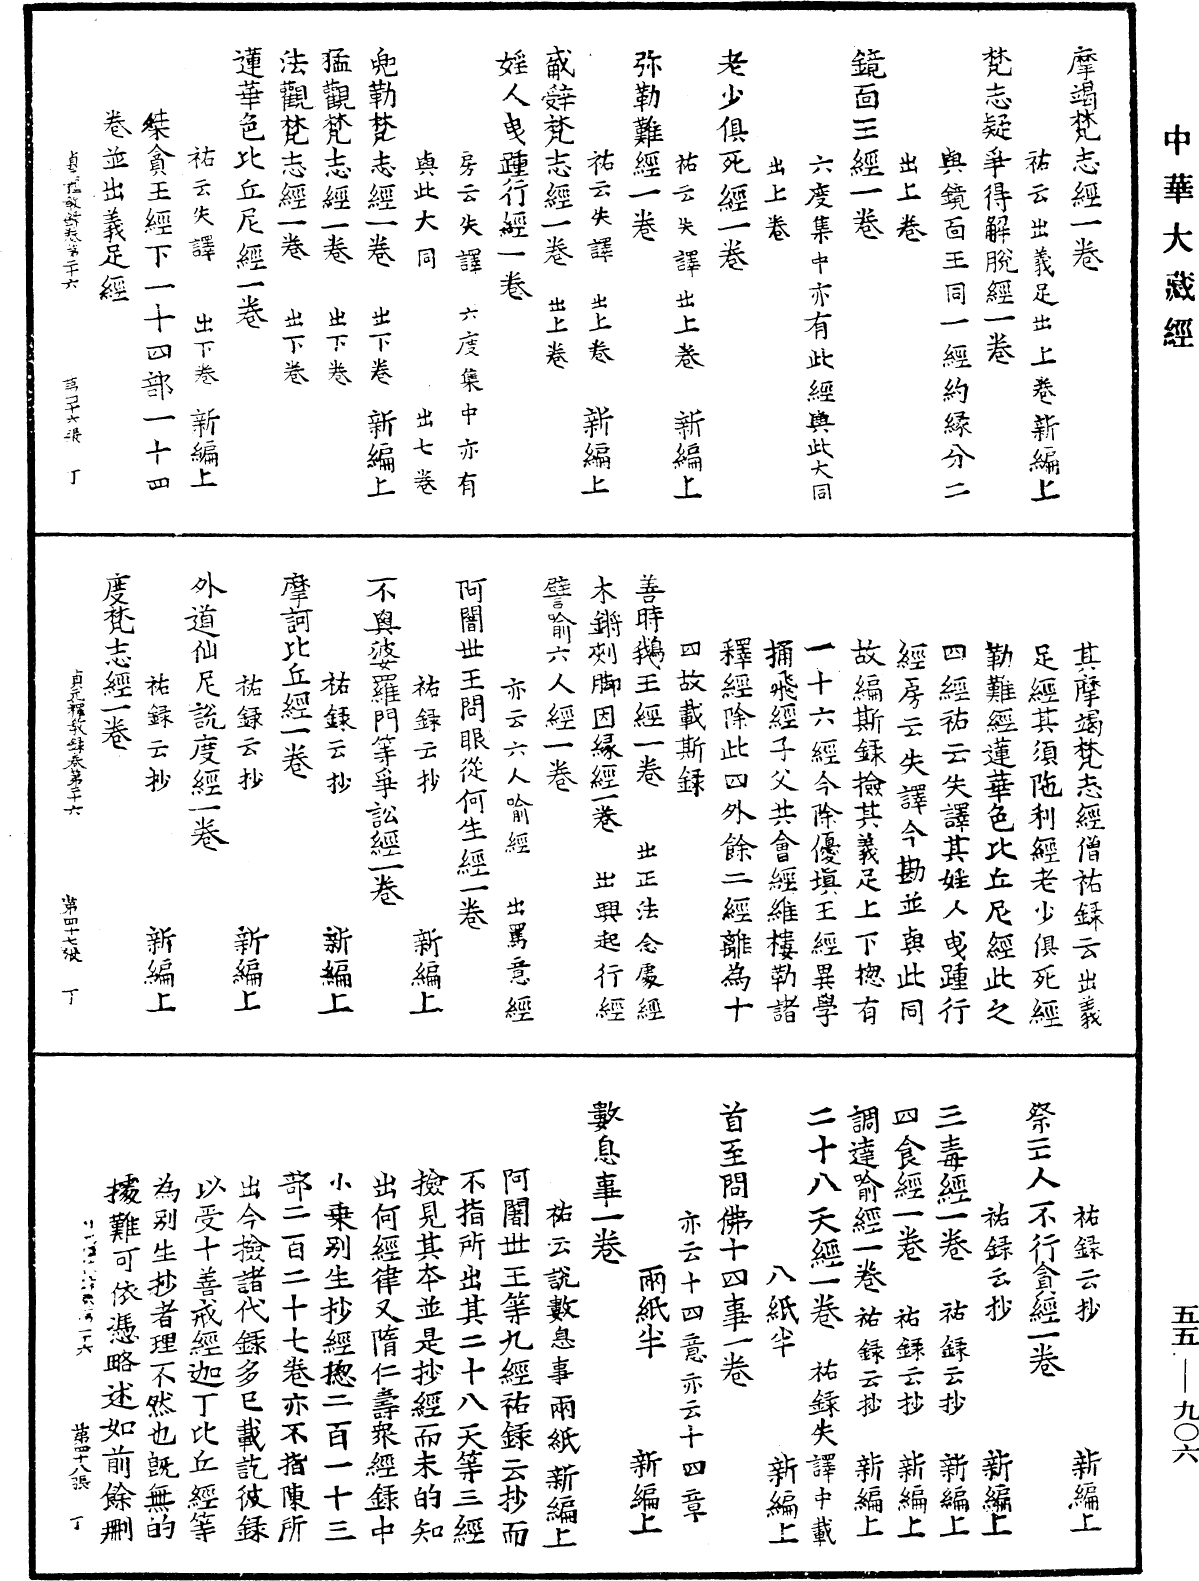 中華大藏經
摩竭梵志經一卷
祐云出義足出上卷新編上
梵志疑爭得解脫經一卷
與鏡面王同一經約緣分二
出上卷
鏡面王經一卷
六度集中亦有此經與此大同
出上卷
老少俱死經一卷
祐云失譯出上卷 新編上
弥勒難經一卷
祐云失譯 出上卷 新編上
戚辝梵志經一卷 出上卷
婬人曳踵行經一卷
房云失譯 六度集中亦有
與此大同 出七卷
兜勒梵志經一卷 出下卷 新編上
猛觀梵志經一卷 出下卷
法觀梵志經一卷 出下卷
蓮華色比丘尼經一卷
祐云失譯 出下卷 新編上
桀貪王經下一十四部一十四
卷並出義足經
丁
其摩竭梵志經僧祐録云出義
足經其須陁利經老少俱死經
勒難經蓮華色比丘尼經此之
四經祐云失譯其婬人曳踵行
經房云失譯今勘並與此同
故編斯録撿其義足上下揔有
一十六經今除優填王經異學
捔飛經子父共會經維樓勒諸
釋經除此四外餘二經離為十
四故載斯録
善時鵝王經一卷 出正法念處經
木鏘刾脚因緣經一卷 出興起行經
譬喻六人經一卷
亦云六人喻經 出罵意經
阿闍世王問眼從何生經一卷
祐録云抄 新編上
不與婆羅門等爭訟經一卷
祐録云抄 新編上
摩訶比丘經一卷
祐録云抄 新編上
外道仙尼說度經一卷
祐録云抄 新編上
度梵志經一卷
貞元釋教録卷第二十六 第四十七張 丁
祐録云抄 新編上
祭亖人不行貪經一卷
祐録云抄 新編上
三毒經一卷 祐録云抄 新編上
四食經一卷 祐録云抄 新編上
調達喻經一卷 祐録云抄 新編上
二十八天經一卷 祐録失譯中載
八紙半 新編上
首至問佛十四事一卷
亦云十四意亦云十四章
兩紙半 新編上
數息事一卷
祐云說數息事兩紙 新編上
阿闍世王等九經祐録云抄而
不指所出其二十八天等三經
撿見其夲並是抄經而未的知
出何經律又隋仁壽衆經録中
小乗別生抄經揔二百一十三
部二百二十七卷亦不指陳所
出今撿諸代録多已載訖彼録
以受十善戒經迦丁比丘經等
為別生抄者理不然也既無的
據難可依憑略述如前餘刪
第四十八張 丁
五五—九〇六